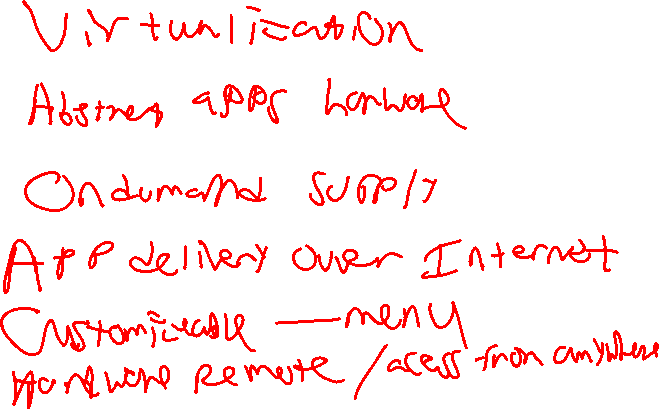 Virtualization
Abstract apps hardware
Ondumand supply
App delivery over Internet
Customizeable — menu
Hardware remote / acess from anywhere